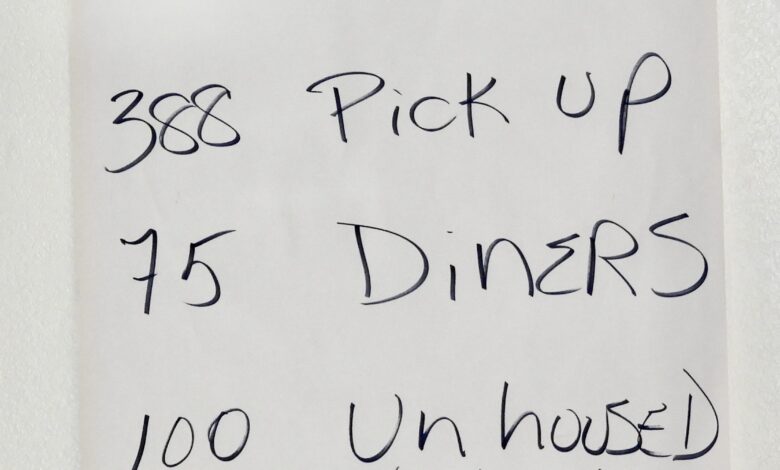 388 Pick up
75 DinERS
100 Un hOUSED